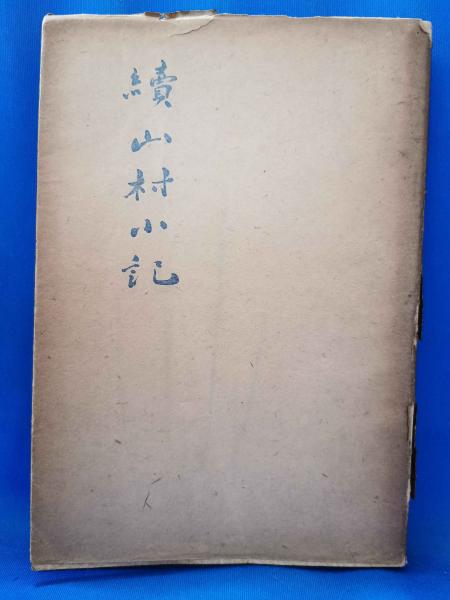 續山村小記